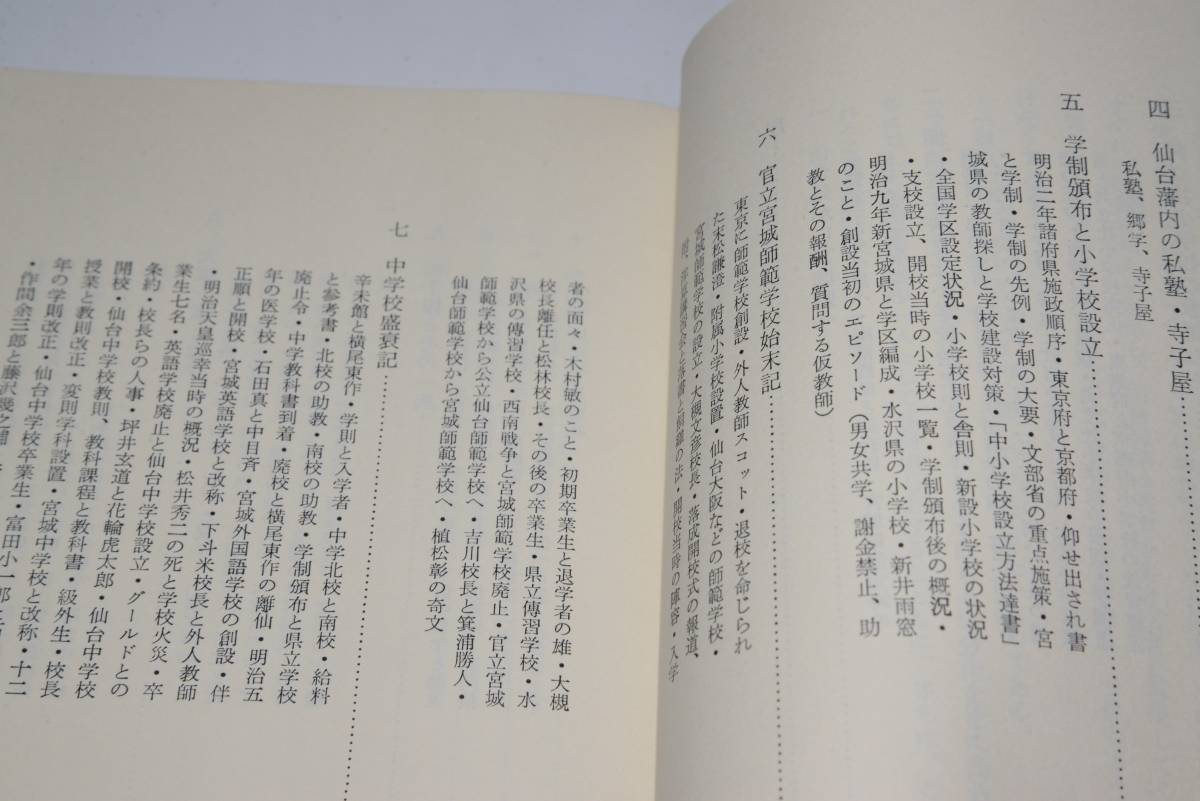 四　仙台藩内の私塾・寺子屋
私塾、郷学、寺子屋
五　学制頒布と小学校設立…………
明治二年諸府県施政順序・東京府と京都府・仰せ出され書
と学制・学制の先例・学制の大要・文部省の重点施策・宮
城県の教師探しと学校建設対策・「中小学校設立方法達書」
・全国学区設定状況・小学校則と舎則・新設小学校の状況
・支校設立、開校当時の小学校一覧・学制頒布後の概況・
明治九年新宮城県と学区編成・水沢県の小学校・新井雨窓
のこと・創設当初のエピソード（男女共学、謝金禁止、助
教とその報酬、質問する仮教師）
六　官立宮城師範学校始末記…………
東京に師範学校創設・外人教師スコット・退校を命じられ
た末松謙澄・附属小学校設置・仙台大阪などの師範学校・
宮城師範学校の設立・大槻文彦校長・落成開校式の報道、
・開校当時の陣容・入学
者の面々・木村敏のこと・初期卒業生と退学者の雄・大槻
校長離任と松林校長・その後の卒業生・県立傳習学校・水
沢県の傳習学校・西南戦争と宮城師範学校廃止・官立宮城
師範学校から公立仙台師範学校へ・吉川校長と箕浦勝人・
仙台師範学校から宮城師範学校へ・植松彰の奇文
七　中学校盛衰記…………
辛未館と横尾東作・学則と入学者・中学北校と南校・給料
と参考書・北校の助教・南校の助教・学制頒布と県立学校
廃止令・中学教科書到着・廃校と横尾東作の離仙・明治五
年の医学校・石田真と中目斉・宮城外国語学校の創設・伴
正順と開校・宮城英語学校と改称・下斗米校長と外人教師
・明治天皇巡幸当時の概況・松井秀二の死と学校火災・卒
業生七名・英語学校廃止と仙台中学校設立・グールドとの
条約・校長らの人事・坪井玄道と花輪虎太郎・仙台中学校
開校・仙台中学校教則、教科課程と教科書・級外生・校長
授業と教則改正・変則学科設置・宮城中学校と改称・十二
年の学則改正・仙台中学校卒業生・富田小一郎
・作間余三郎と藤沢幾之輔